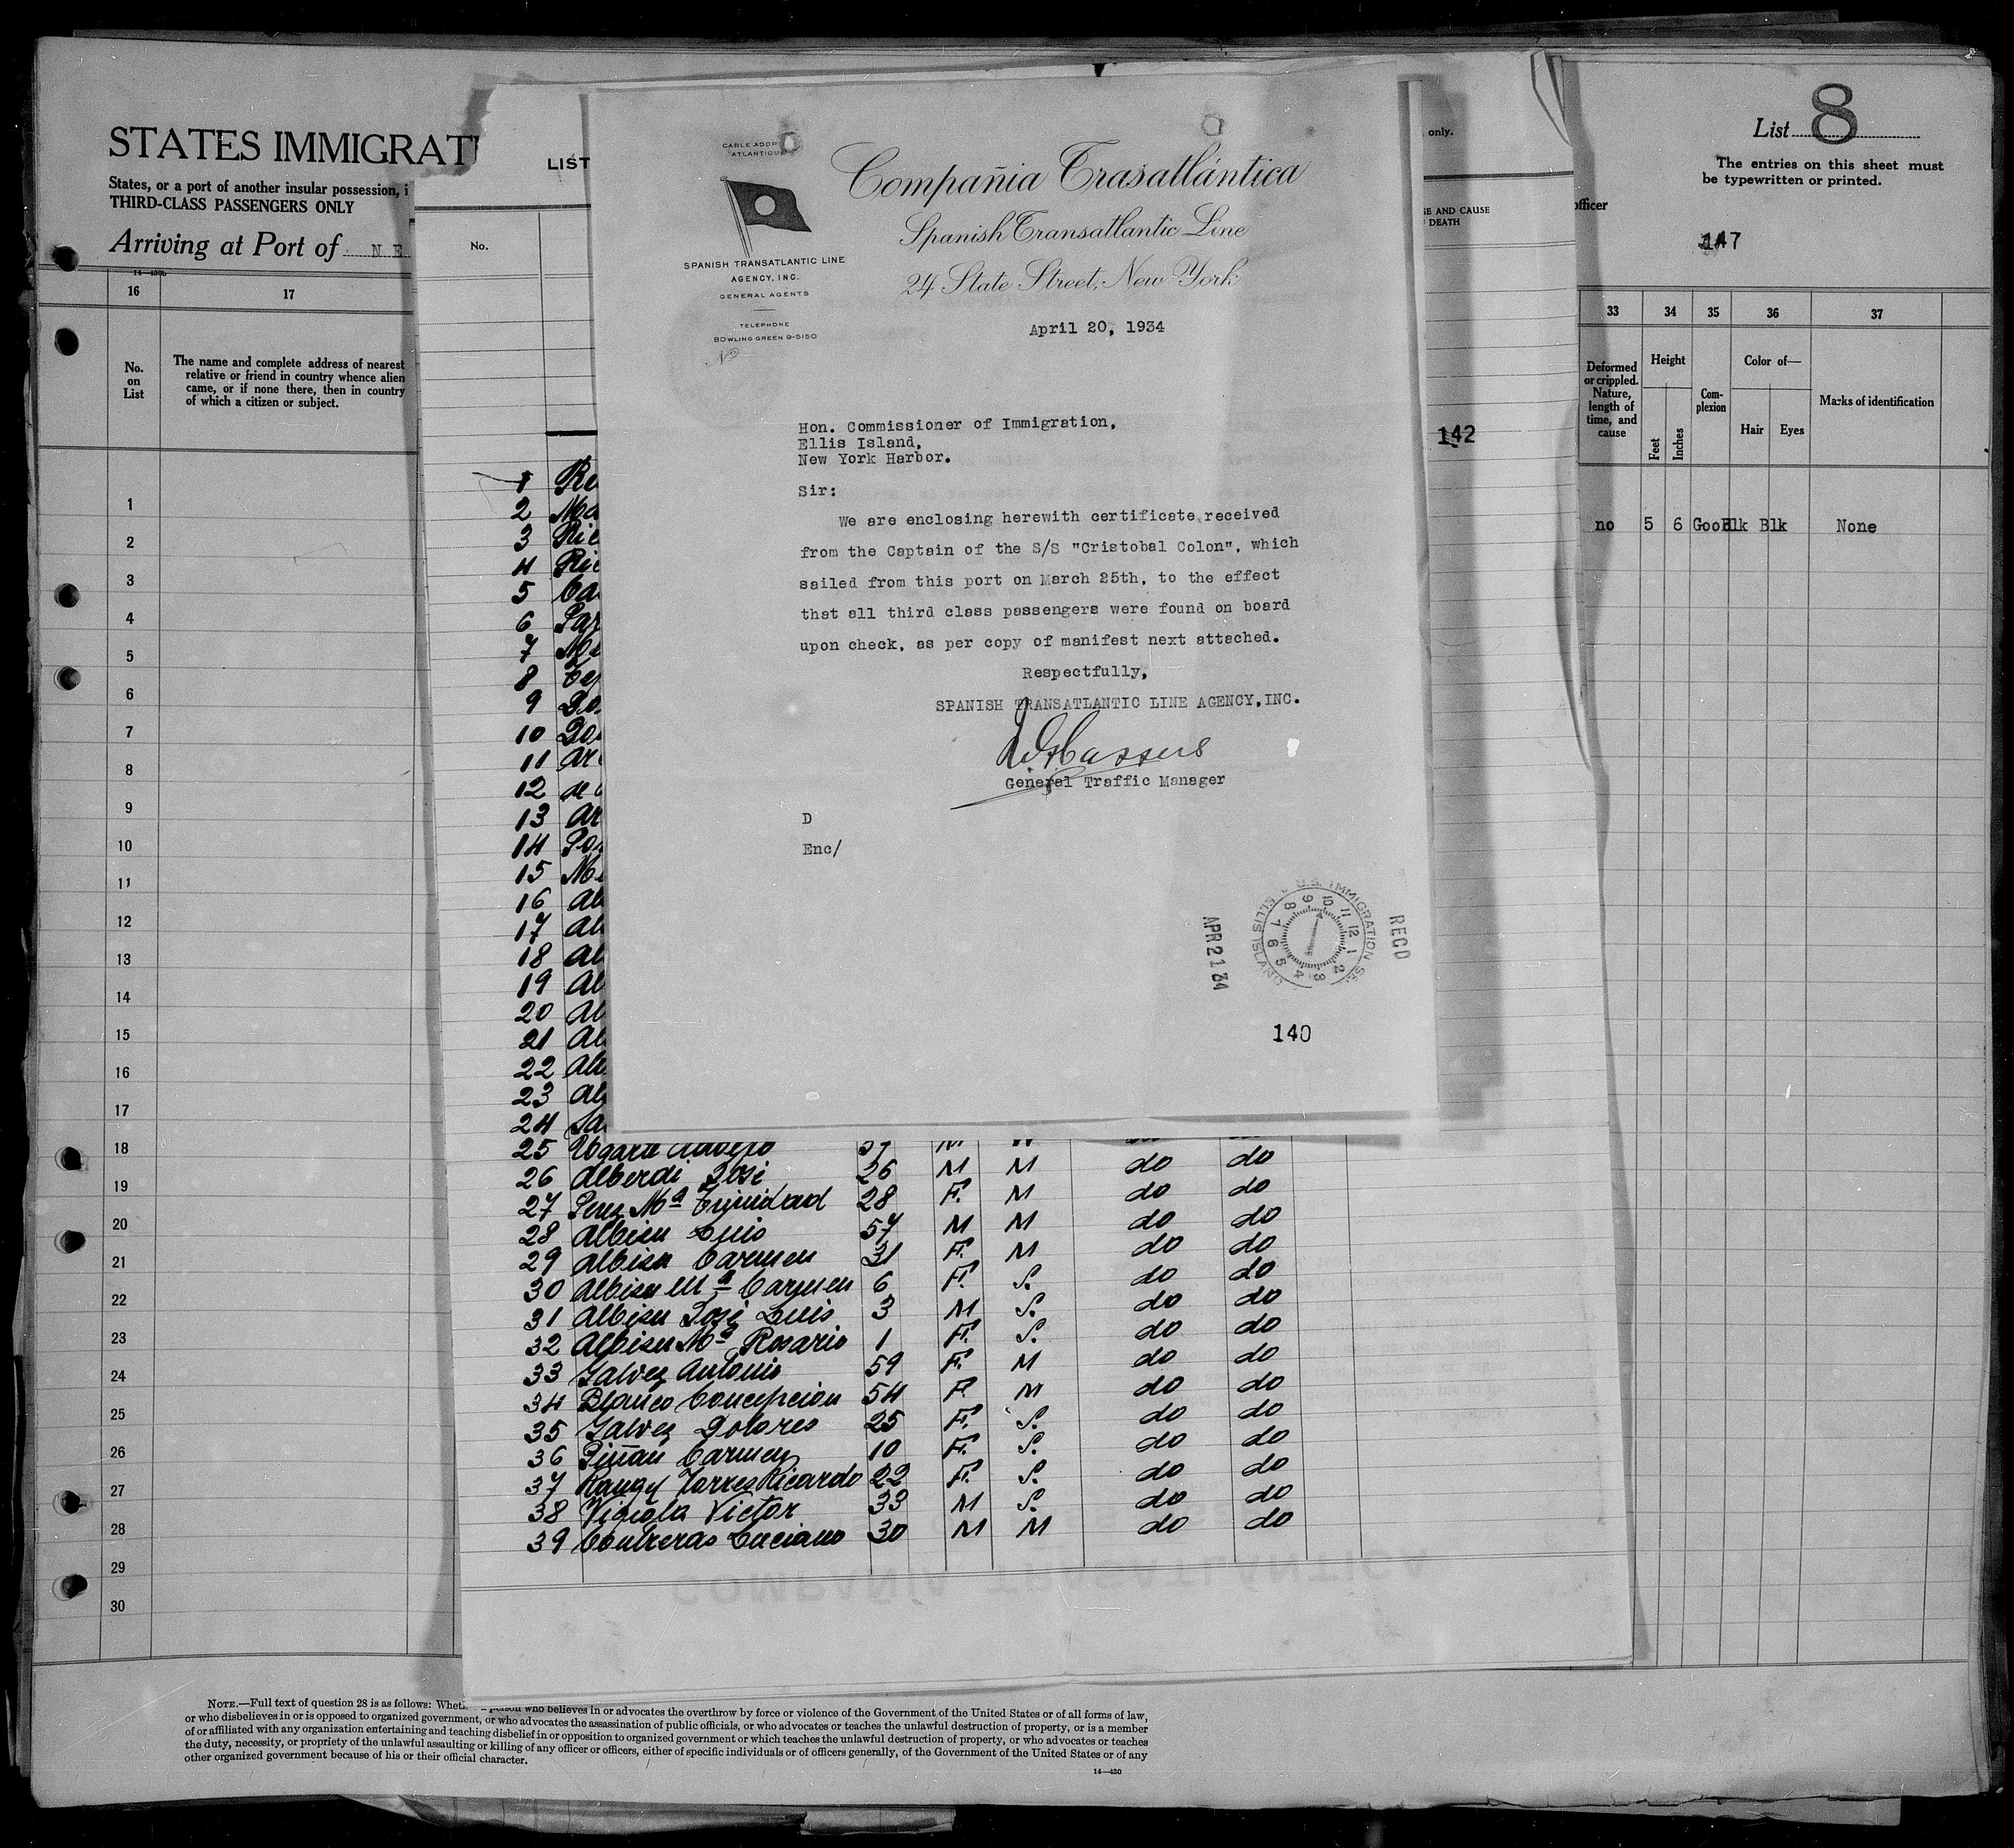 STATES IMMIGRAT
States, or a port of another insular possession, i
THIRD-CLASS PASSENGERS ONLY
Arriving at Port of N E
14—430b
16 17
No. on List
The name and complete address of nearest
relative or friend in country whence alien
came, or if none there, then in country
of which a citizen or subject.
1
2
3
4
5
6
7
8
9
10
11
12
13
14
15
16
17
18
19
20
21
22
23
24
25
26
27
28
29
30
LIST
No.
only.
E AND CAUSE
DEATH
142
1 Ro
2 Ma
3 Ric
4 Ric
5 Ca
6
7
8
9
10
11 Ar
12
13 Ar
14
15
16 Al
17 Al
18 Al
19 Al
20 Al
21 Al
22 Al
23 Al
24 Sa
25 37 M
26 Alberdi José 26 M M do do
27 Perez Mª Trinidad 28 F. M do do
28 Albisu Luis 57 M M do do
29 Albisu Carmen 31 F. M do do
30 Albisu Mª Carmen 6 F. S. do do
31 Albisu José Luis 3 M S. do do
32 Albisu Mª Rosario 1 F. S. do do
33 Galvez Antonio 59 F. M do do
34 Blanco Concepcion 54 F. M do do
35 Galvez Dolores 25 F. S. do do
36 Piñan Carmen 10 F. S. do do
37 Torres Ricardo 22 F. S. do do
38 Victor 33 M S. do do
39 Contreras Luciano 30 M M do do
COMPAÑÍA TRASATLÁNTICA
CABLE ADDR
"ATLANTIQUE
SPANISH TRANSATLANTIC LINE
AGENCY, INC.
GENERAL AGENTS
TELEPHONE
BOWLING GREEN 9-5150
Compañia Trasatlántica
Spanish Transatlantic Line
24 State Street, New York
April 20, 1934
Hon. Commissioner of Immigration,
Ellis Island,
New York Harbor.
Sir:
We are enclosing herewith certificate received
from the Captain of the S/S "Cristobal Colon", which
sailed from this port on March 25th, to the effect
that all third class passengers were found on board
upon check, as per copy of manifest next attached.
Respectfully,
SPANISH TRANSATLANTIC LINE AGENCY, INC.
General Traffic Manager
D
Enc/
RECD
U.S. IMMIGRATION SE.
ELLIS ISLAND
1 2 3 4 5 6 7 8 9 10 11 12
APR 21 34
140
List 8
The entries on this sheet must
be typewritten or printed.
officer
147
33 34 35 36 37
Deformed
or crippled.
Nature,
length of
time, and
cause
Height
Feet
Inches
Com-
plexion
Color of—
Hair Eyes
Marks of identification
no 5 6 Good Blk Blk None
NOTE.—Full text of question 28 is as follows: Wheth a person who believes in or advocates the overthrow by force or violence of the Government of the United States or of all forms of law,
or who disbelieves in or is opposed to organized government, or who advocates the assassination of public officials, or who advocates or teaches the unlawful destruction of property, or is a member
of or affiliated with any organization entertaining and teaching disbelief in or opposition to organized government or which teaches the unlawful destruction of property, or who advocates or teaches
the duty, necessity, or propriety of the unlawful assaulting or killing of any officer or officers, either of specific individuals or of officers generally, of the Government of the United States or of any
other organized government because of his or their official character.
14—430